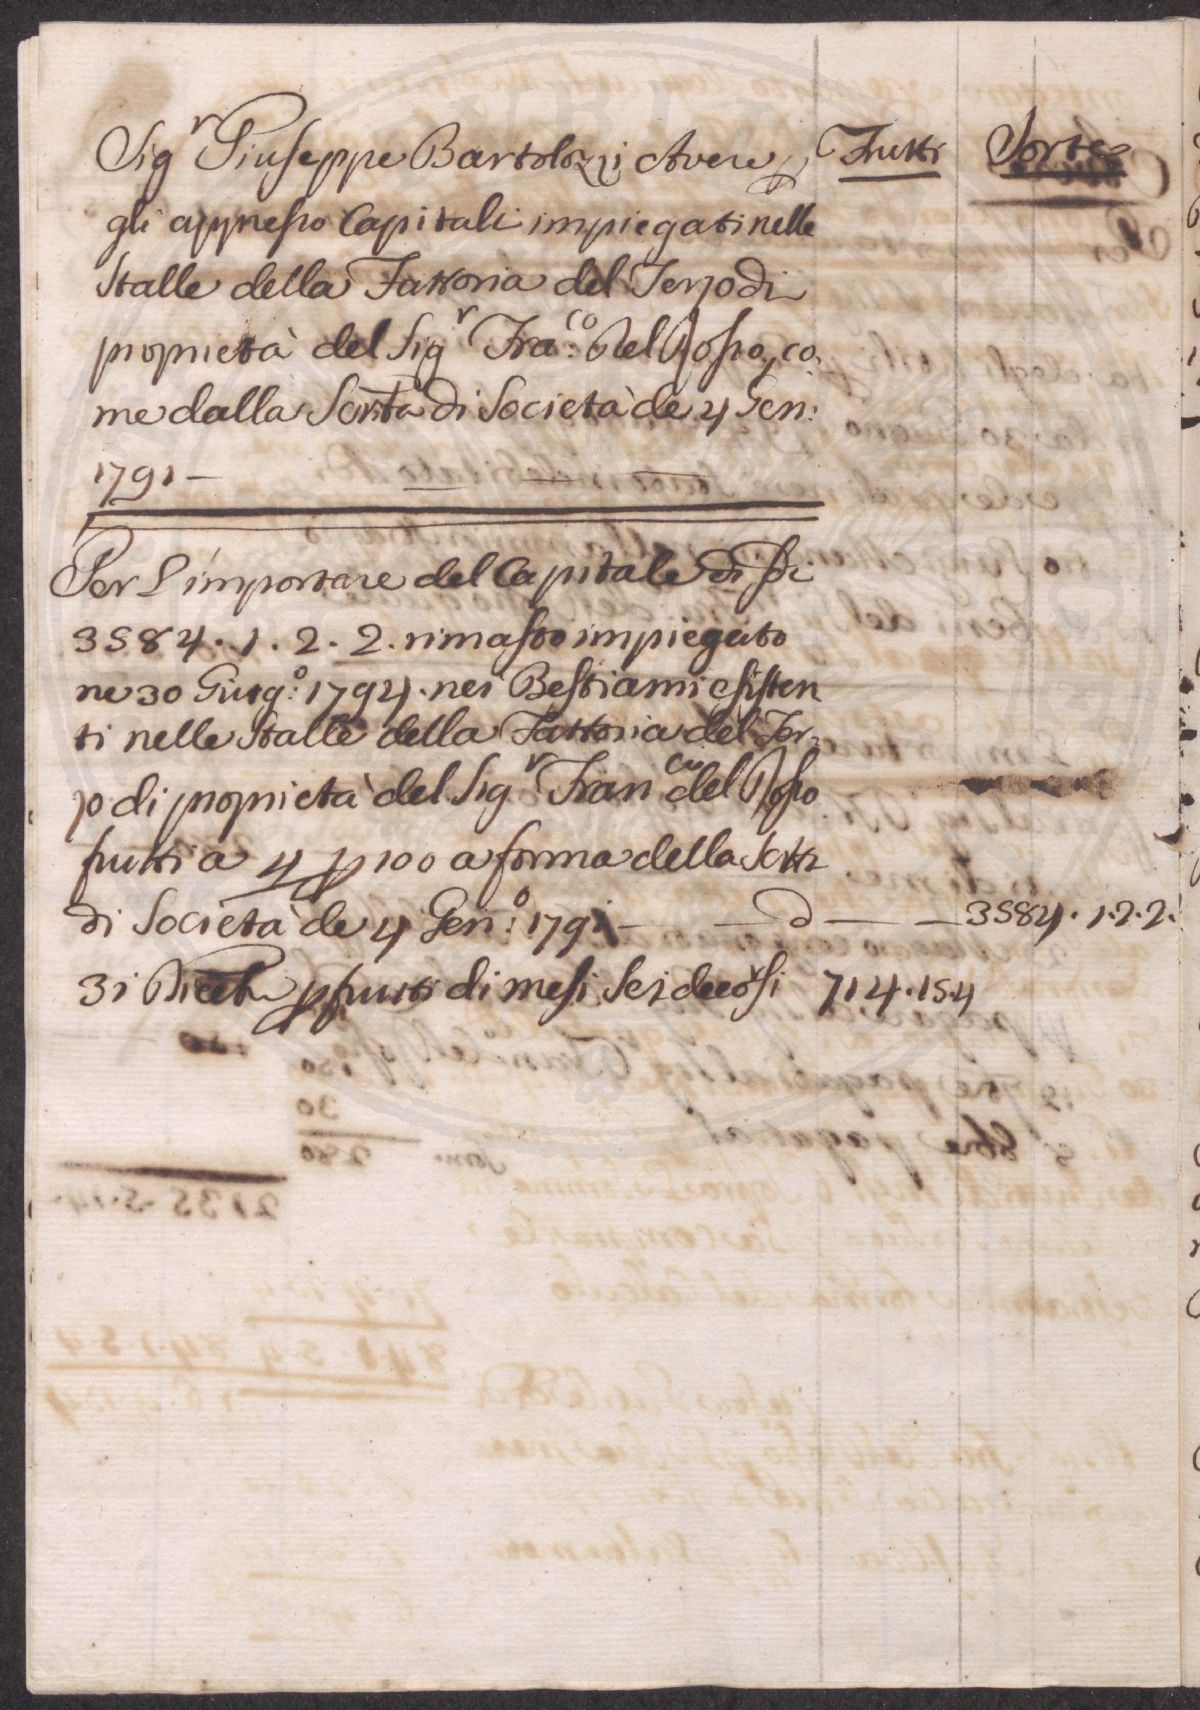 Sig.r Giuseppe Bartolozzi Avere Frutti Sorte
gli appresso Capitali impiegati nelle
Stalle della Fattoria del Terzo di
proprietà del Sig.r Fra.co Del Rosso, co
me dalla Scritta di Società de 4 Gen:
1791 —
Per L'importare del Capitale di
3584. 1. 2. 2. rimasto impiegato
ne 30 Giug:o 1794. nei Bestiami esisten
ti nelle Stalle della Fattoria del Ter
zo di proprietà del Sig.r Fran.co del Rosso
frutti a 4 p 100 a forma della Scritt
di Società de 4 Gen:o 1791 — 3584. 1. 2. 2.
31 Diceb p frutti di mesi Sei decorsi 714. 15. 4